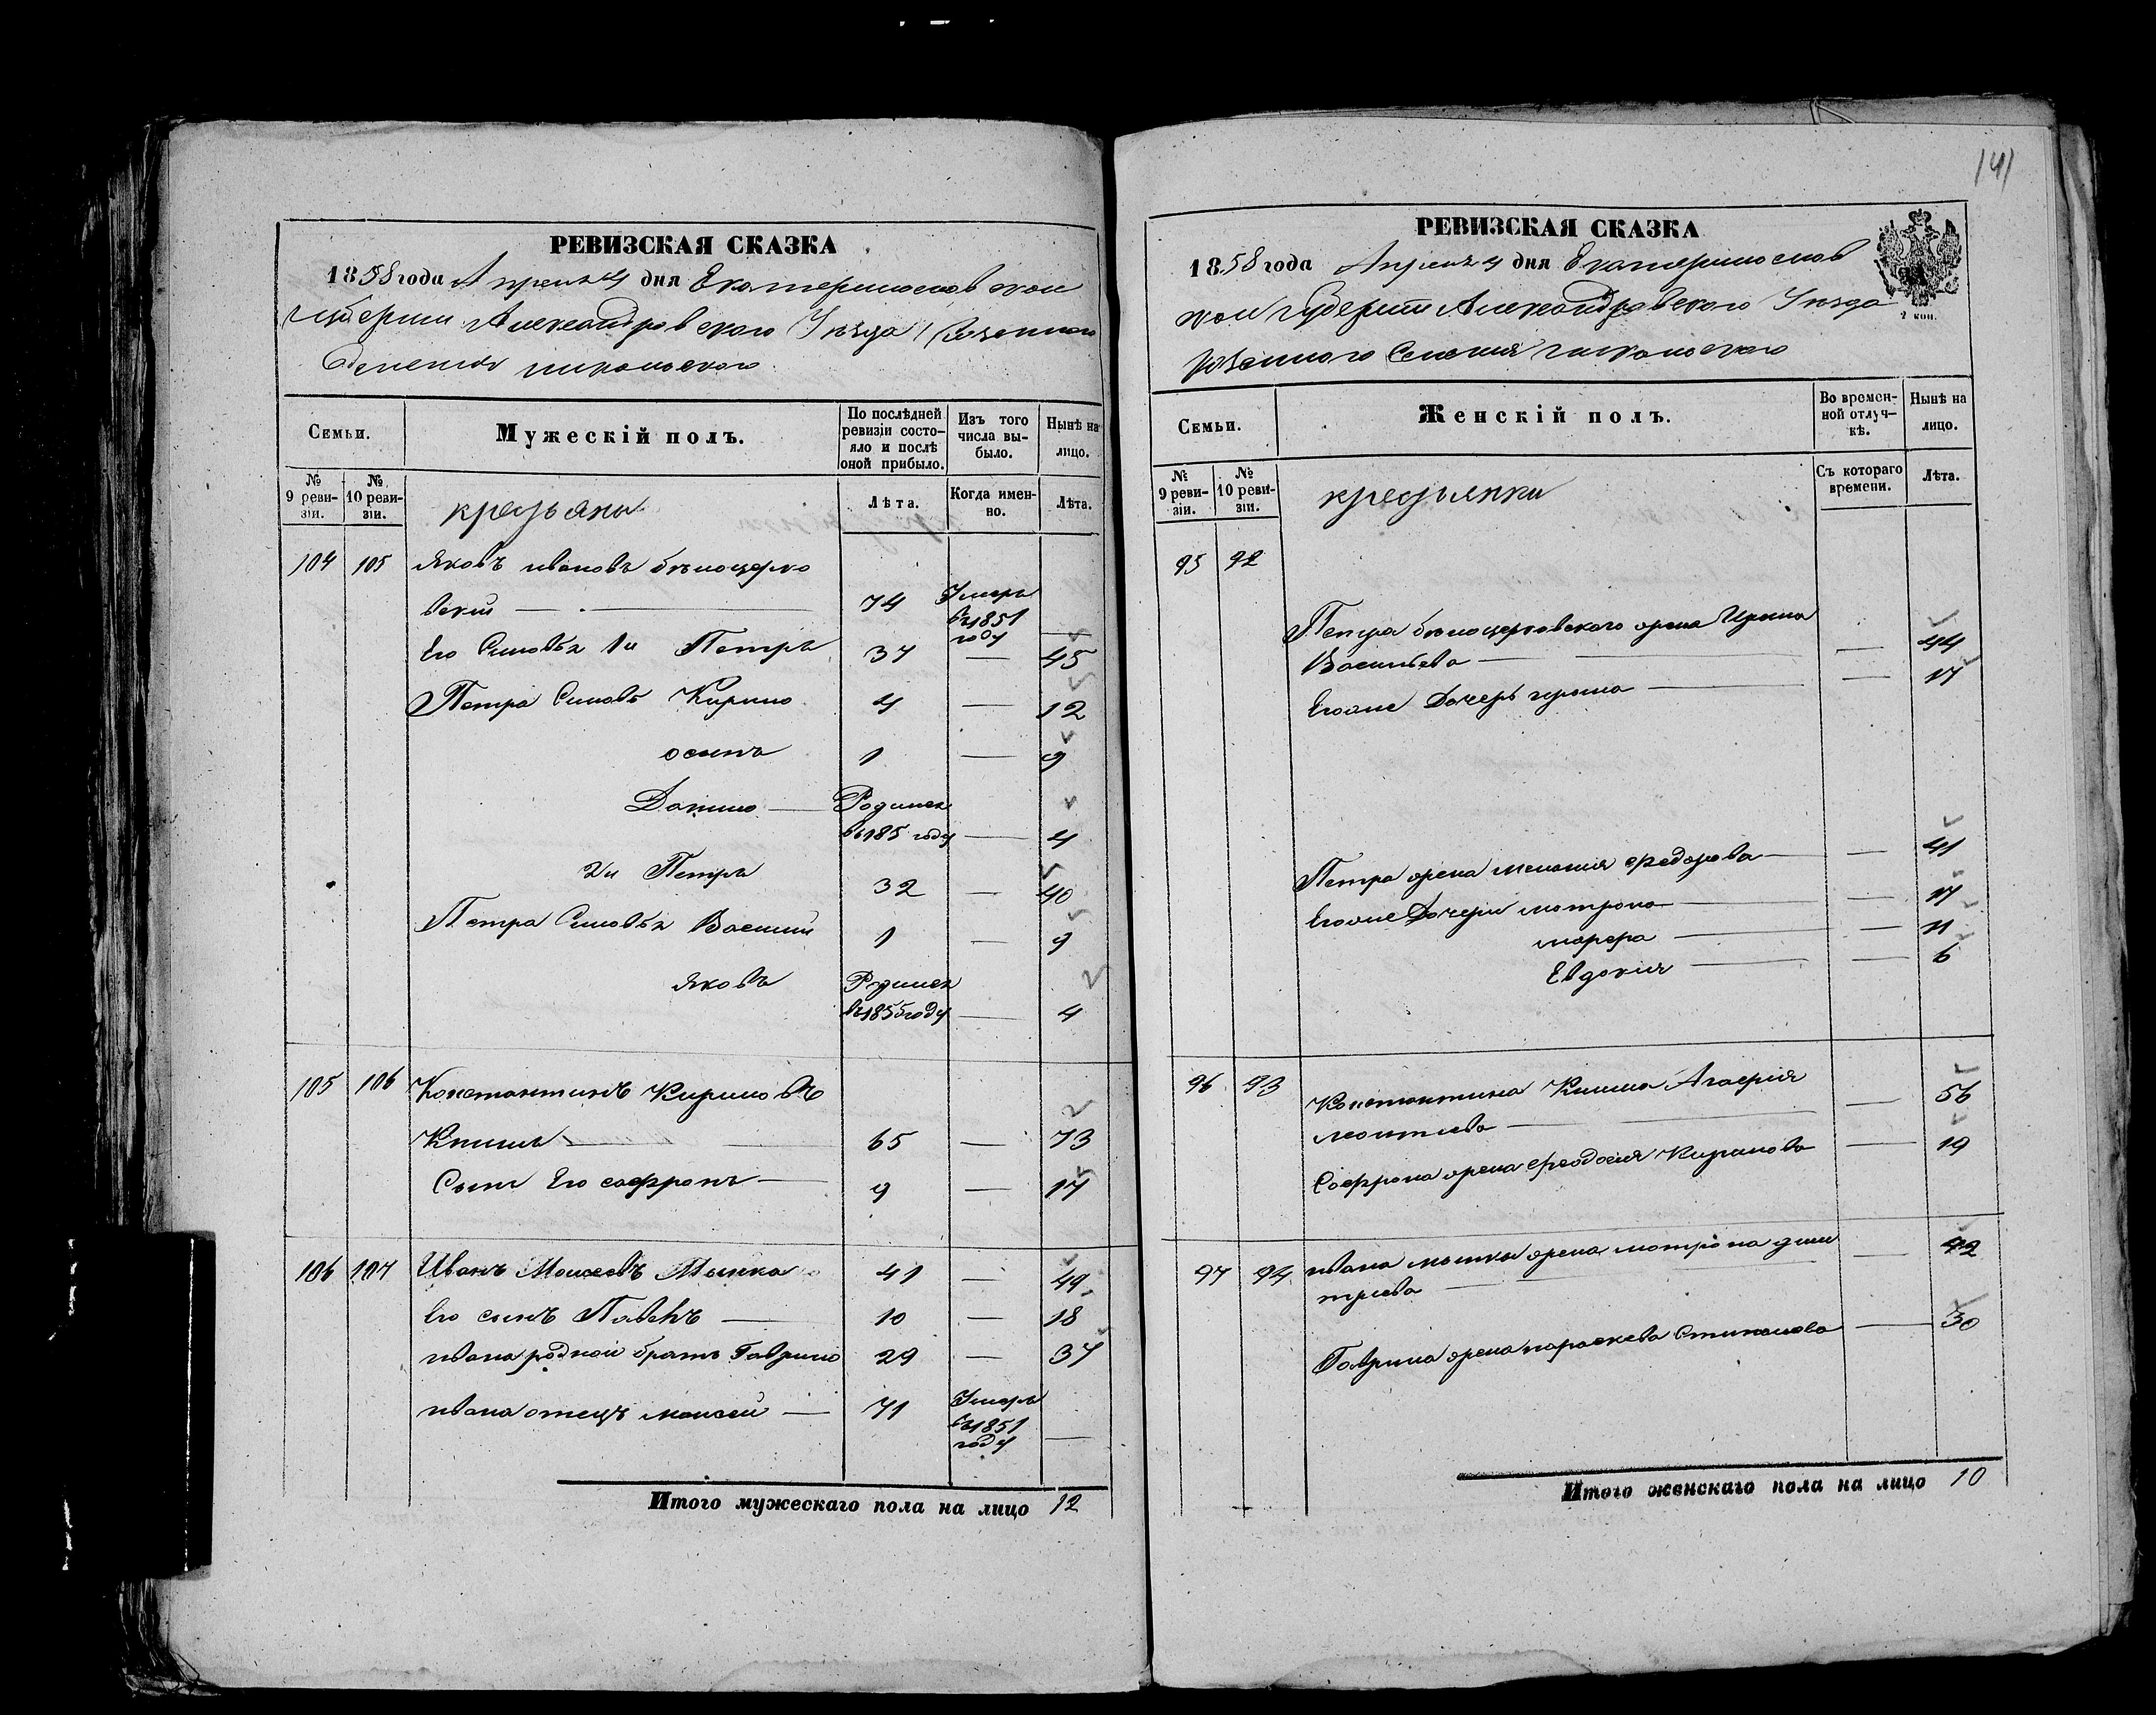 141
РЕВИЗСКАЯ СКАЗКА
1858 года Апреля 4 дня Екатеринославской
губернии Александровского Уезда Казенного
Селения никольского
Семьи.
Мужескій полъ.
По послѣдней ревизіи состояло и послѣ оной прибыло.
Изъ того числа выбыло.
Нынѣ на лицо.
№ 9 ревизіи.
№ 10 ревизіи.
крестьяны
Лѣта.
Когда именно.
Лѣта.
104 105 Яковъ ивановъ белоцерко
вский — 74 Умеръ въ 1851 году —
Его Сыновья 1й Петръ 37 — 45
Петра Сыновъ Кирило 4 — 12
осипъ 1 — 9
Данило — Родился въ 185 году — 4
2й Петръ 32 — 40
Петра Сыновья Василий 1 — 9
Яковъ Родился въ 1855 году — 4
105 106 Константинъ Кириловъ
Книшъ — 65 — 73
Сынъ Его софронъ — 9 — 17
106 107 Иванъ Моисеевъ Мошка 41 — 49
Его сынъ Павелъ — 10 — 18
ивана родной братъ Гаврило 29 — 37
ивана отецъ моисей — 71 Умеръ въ 1851 году —
Итого мужескаго пола на лицо 12
РЕВИЗСКАЯ СКАЗКА
2 коп.
1858 года Апреля 4 дня Екатеринослав
ской губернии Александровского Уезда
Казенного Селения никольского
Семьи.
Женскій полъ.
Во временной отлучкѣ.
Нынѣ на лицо.
№ 9 ревизіи.
№ 10 ревизіи.
крестьянки
Съ котораго времени.
Лѣта.
95 92
Петра белоцерковского жена Ирина
Васильева — — 44
Егоже Дочерь — — 17
Петра жена мелания федорова — — 41
Егоже Дочери мотрона — — 17
марфа — — 11
Евдокия — — 6
96 93 Константина Книша Агафия
леонтиева — — 56
Софрона жена феодосия — 19
97 94 ивана мошки жена мотрона дми
триева — — 42
Гаврила жена параскева Степанова — 30
Итого женскаго пола на лицо 10